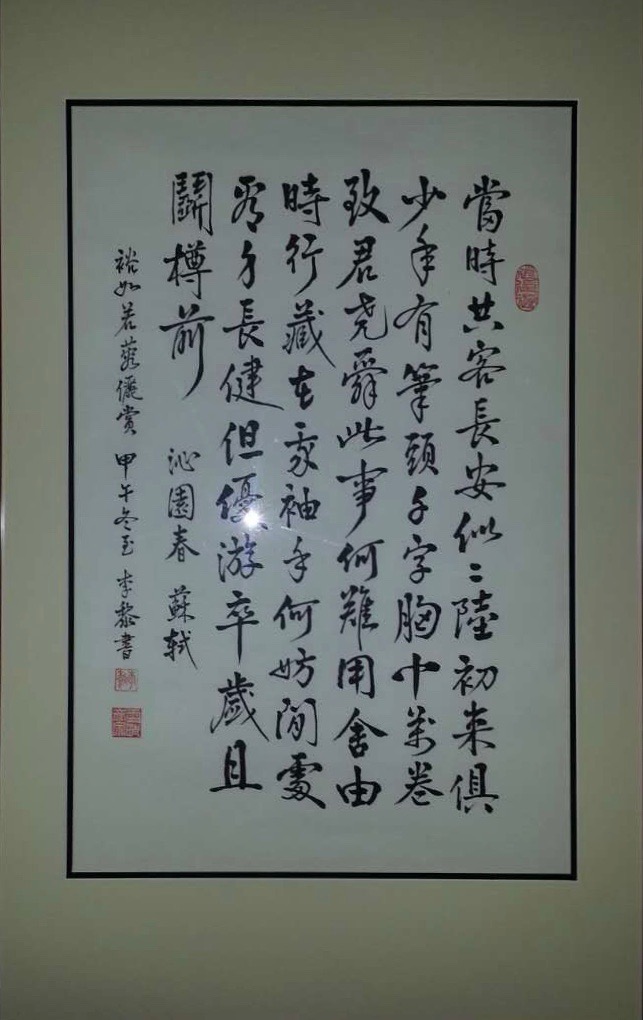 當時共客長安似二陸初来俱
少年有筆頭千字胸中萬卷
致君堯舜此事何難用舍由
時行藏在我袖手何妨閒處
看身長健但優游卒歲且
鬭樽前 沁園春 蘇軾
裕如若 儷賞 甲午冬至 李黎書